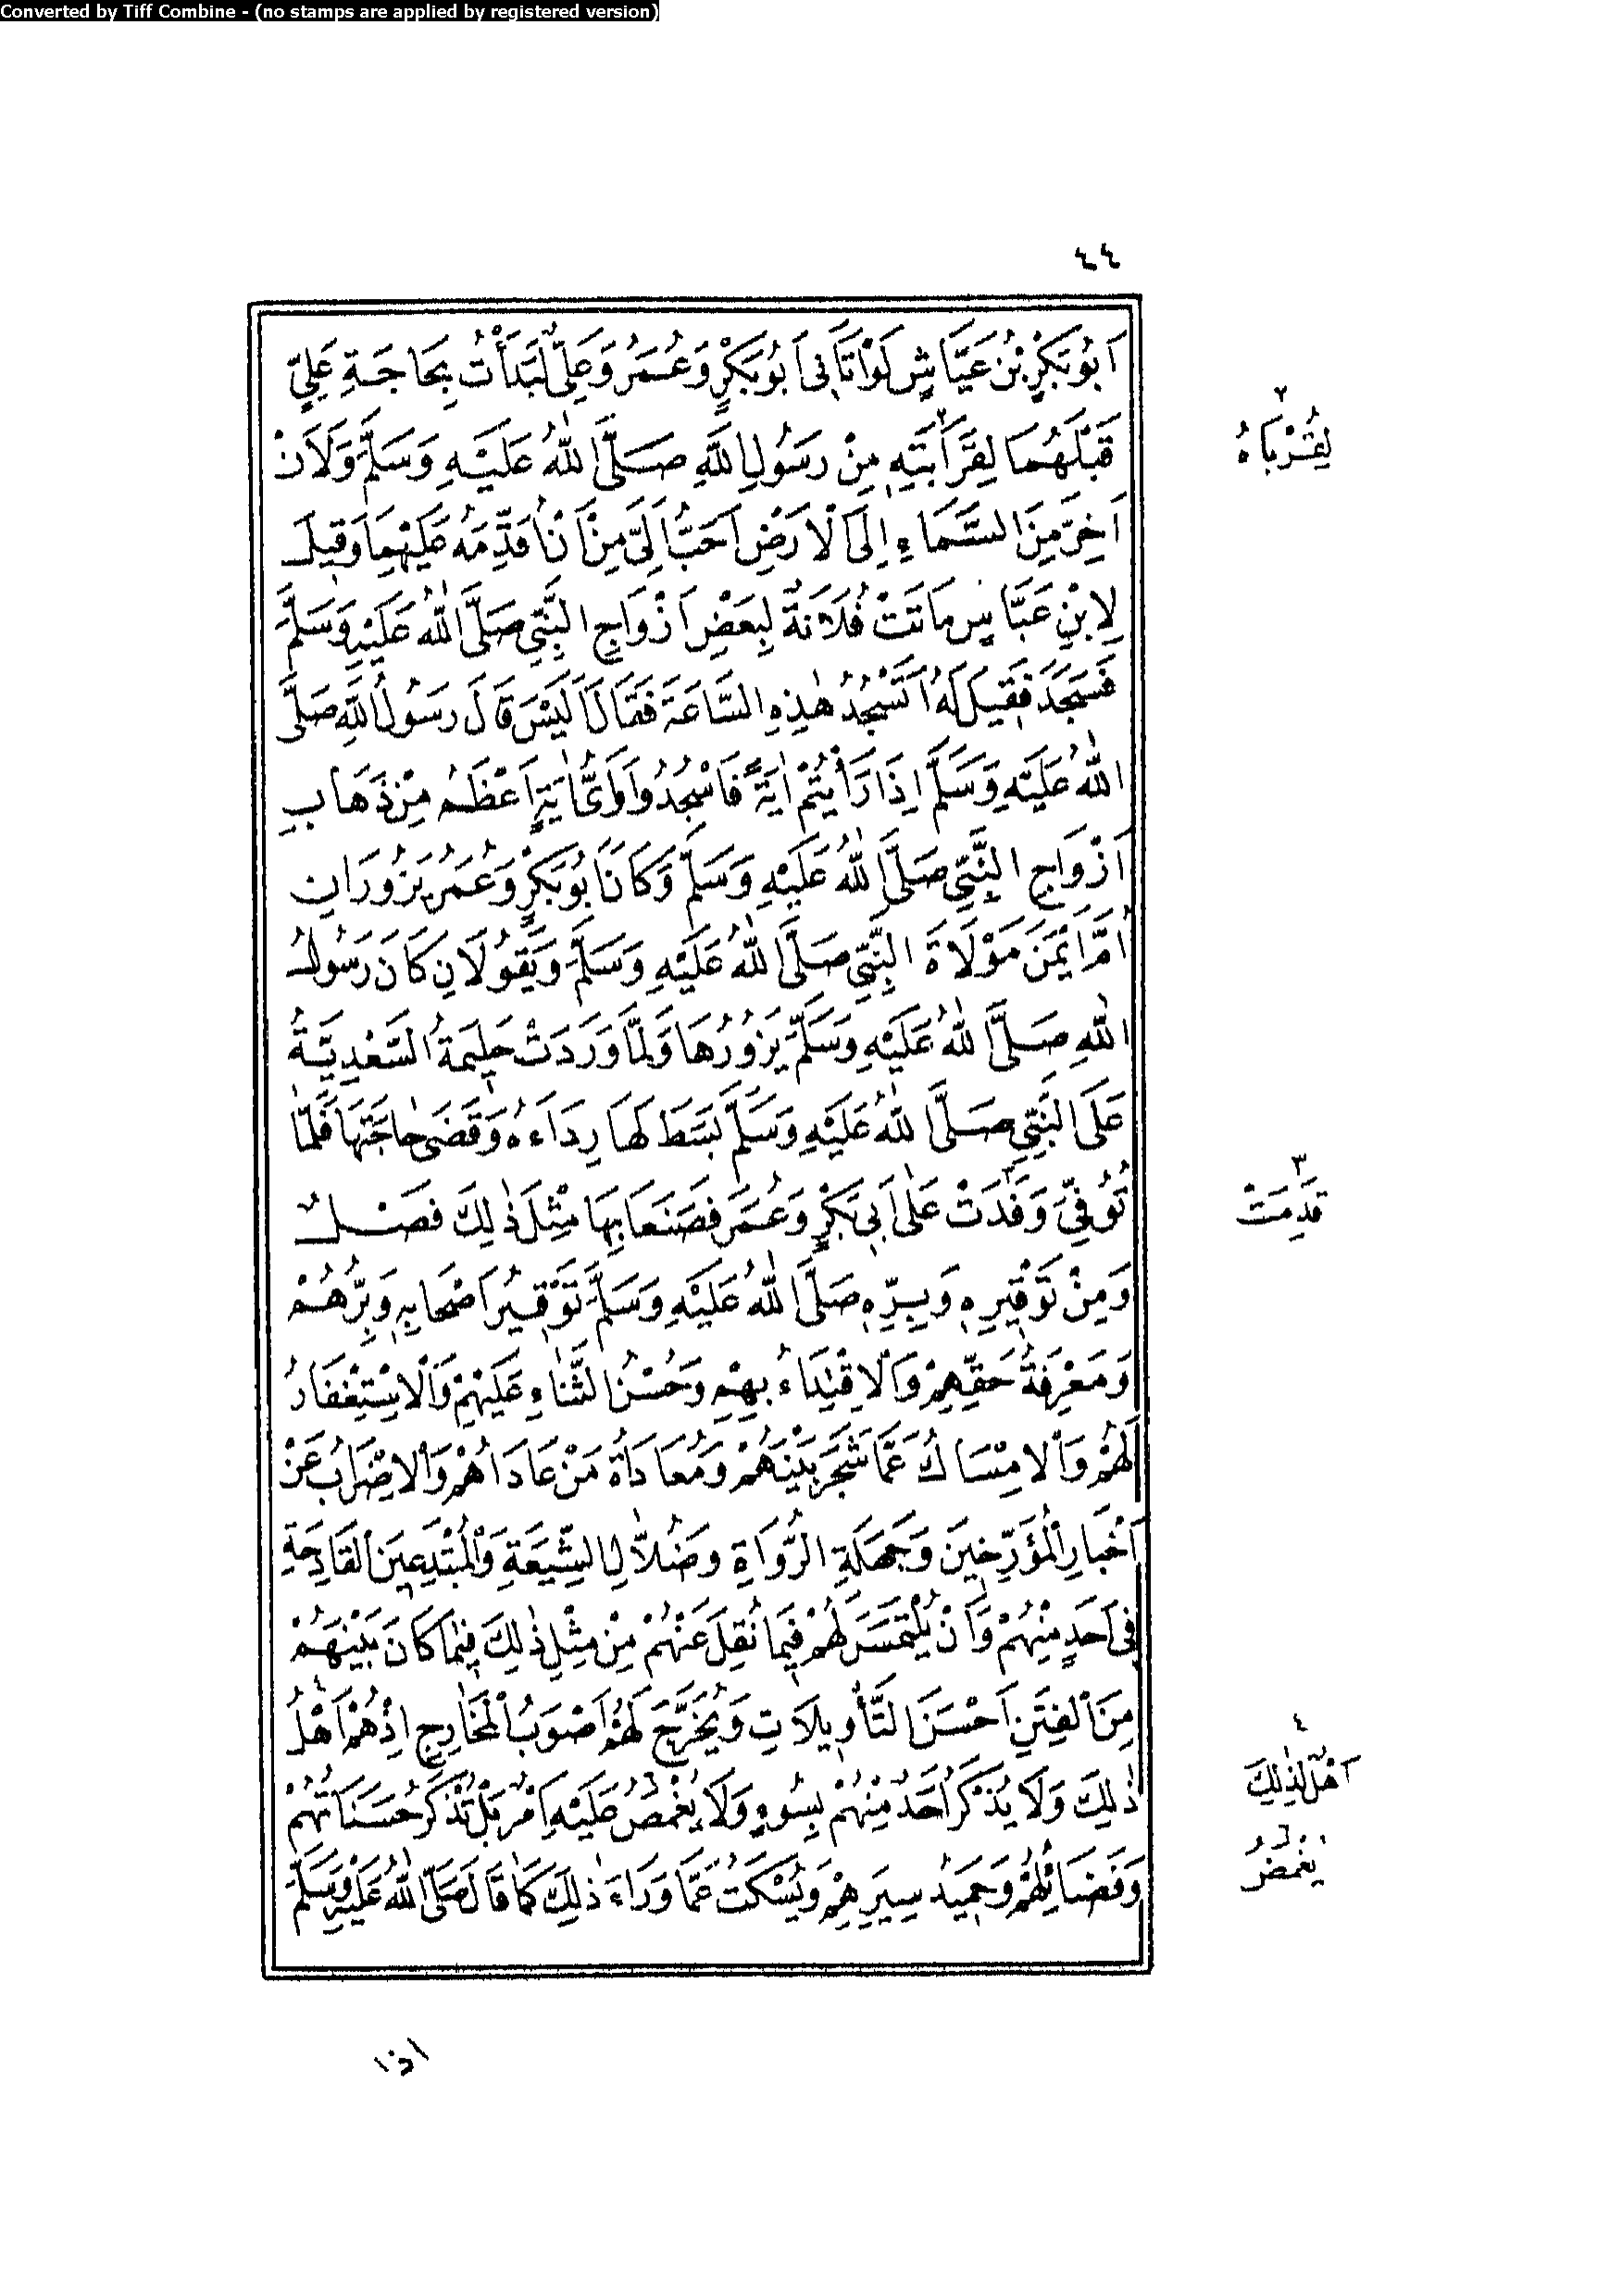 Converted by Tiff Combine - (no stamps are applied by registered version)
٤٤
اَبُو بَكْرِ بْنُ عَيَّاشٍ لَوْ اَتَانِى اَبُو بَكْرٍ وَعُمَرُ وَعَلِىٌّ لَبَدَأْتُ بِحَاجَةِ عَلِيٍّ
قَبْلَهُمَا لِقَرَابَتِهِ مِنْ رَسُولِ اللهِ صَلَّى اللهُ عَلَيْهِ وَسَلَّمَ وَلَاَنْ
اَخِرَّ مِنَ السَّمَاءِ اِلَى الْاَرْضِ اَحَبُّ اِلَىَّ مِنْ اَنْ اُقَدِّمَهُ عَلَيْهِمَا وَقِيلَ
لِابْنِ عَبَّاسٍ مَاتَتْ فُلَانَةُ لِبَعْضِ اَزْوَاجِ النَّبِىِّ صَلَّى اللهُ عَلَيْهِ وَسَلَّمَ
فَسَجَدَ فَقِيلَ لَهُ اَتَسْجُدُ هٰذِهِ السَّاعَةَ فَقَالَ اَلَيْسَ قَالَ رَسُولُ اللهِ صَلَّى
اللهُ عَلَيْهِ وَسَلَّمَ اِذَا رَأَيْتُمْ اٰيَةً فَاسْجُدُوا وَاَىُّ اٰيَةٍ اَعْظَمُ مِنْ ذَهَابِ
اَزْوَاجِ النَّبِىِّ صَلَّى اللهُ عَلَيْهِ وَسَلَّمَ وَكَانَ اَبُو بَكْرٍ وَعُمَرُ يَزُورَانِ
اُمَّ اَيْمَنَ مَوْلَاةَ النَّبِىِّ صَلَّى اللهُ عَلَيْهِ وَسَلَّمَ وَيَقُولَانِ كَانَ رَسُولُ
اللهِ صَلَّى اللهُ عَلَيْهِ وَسَلَّمَ يَزُورُهَا وَلَمَّا وَرَدَتْ حَلِيمَةُ السَّعْدِيَّةُ
عَلَى النَّبِىِّ صَلَّى اللهُ عَلَيْهِ وَسَلَّمَ بَسَطَ لَهَا رِدَاءَهُ وَقَضَى حَاجَتَهَا فَلَمَّا
تُوُفِّىَ وَفَدَتْ عَلٰى اَبِى بَكْرٍ وَعُمَرَ فَصَنَعَا بِهَا مِثْلَ ذٰلِكَ فَصْلٌ
وَمِنْ تَوْقِيرِهِ وَبِرِّهِ صَلَّى اللهُ عَلَيْهِ وَسَلَّمَ تَوْقِيرُ اَصْحَابِهِ وَبِرُّهُمْ
وَمَعْرِفَةُ حَقِّهِمْ وَالْاِقْتِدَاءُ بِهِمْ وَحُسْنُ الثَّنَاءِ عَلَيْهِمْ وَالْاِسْتِغْفَارُ
لَهُمْ وَالْاِمْسَاكُ عَمَّا شَجَرَ بَيْنَهُمْ وَمُعَادَاةُ مَنْ عَادَاهُمْ وَالْاِضْرَابُ عَنْ
اَخْبَارِ الْمُؤَرِّخِينَ وَجَهَلَةِ الرُّوَاةِ وَضُلَّالِ الشِّيعَةِ وَالْمُبْتَدِعِينَ الْقَادِحَةِ
فِى اَحَدٍ مِنْهُمْ وَاَنْ يُلْتَمَسَ لَهُمْ فِيمَا نُقِلَ عَنْهُمْ مِنْ مِثْلِ ذٰلِكَ فِيمَا كَانَ بَيْنَهُمْ
مِنَ الْفِتَنِ اَحْسَنَ التَّأْوِيلَاتِ وَيُخَرَّجَ لَهُمْ اَصْوَبُ الْمَخَارِجِ اِذْ هُمْ اَهْلُ
ذٰلِكَ وَلَا يُذْكَرُ اَحَدٌ مِنْهُمْ بِسُوءٍ وَلَا يُغْمَصُ عَلَيْهِ اَمْرٌ بَلْ تُذْكَرُ حَسَنَاتُهُمْ
وَفَضَائِلُهُمْ وَحَمِيدُ سِيَرِهِمْ وَيُسْكَتُ عَمَّا وَرَاءَ ذٰلِكَ كَمَا قَالَ صَلَّى اللهُ عَلَيْهِ وَسَلَّمَ
٢
لِقُرْبَاهُ
٣
قَدِمَتْ
٤
اَهْلٌ لِذٰلِكَ
يغمض
اذا